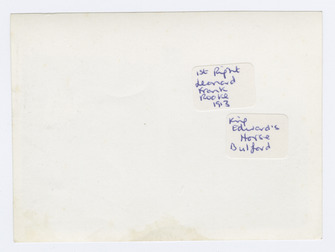 1st Right
Leonard
Frank
Rooke
1913
King
Edward's
Horse
Bulford